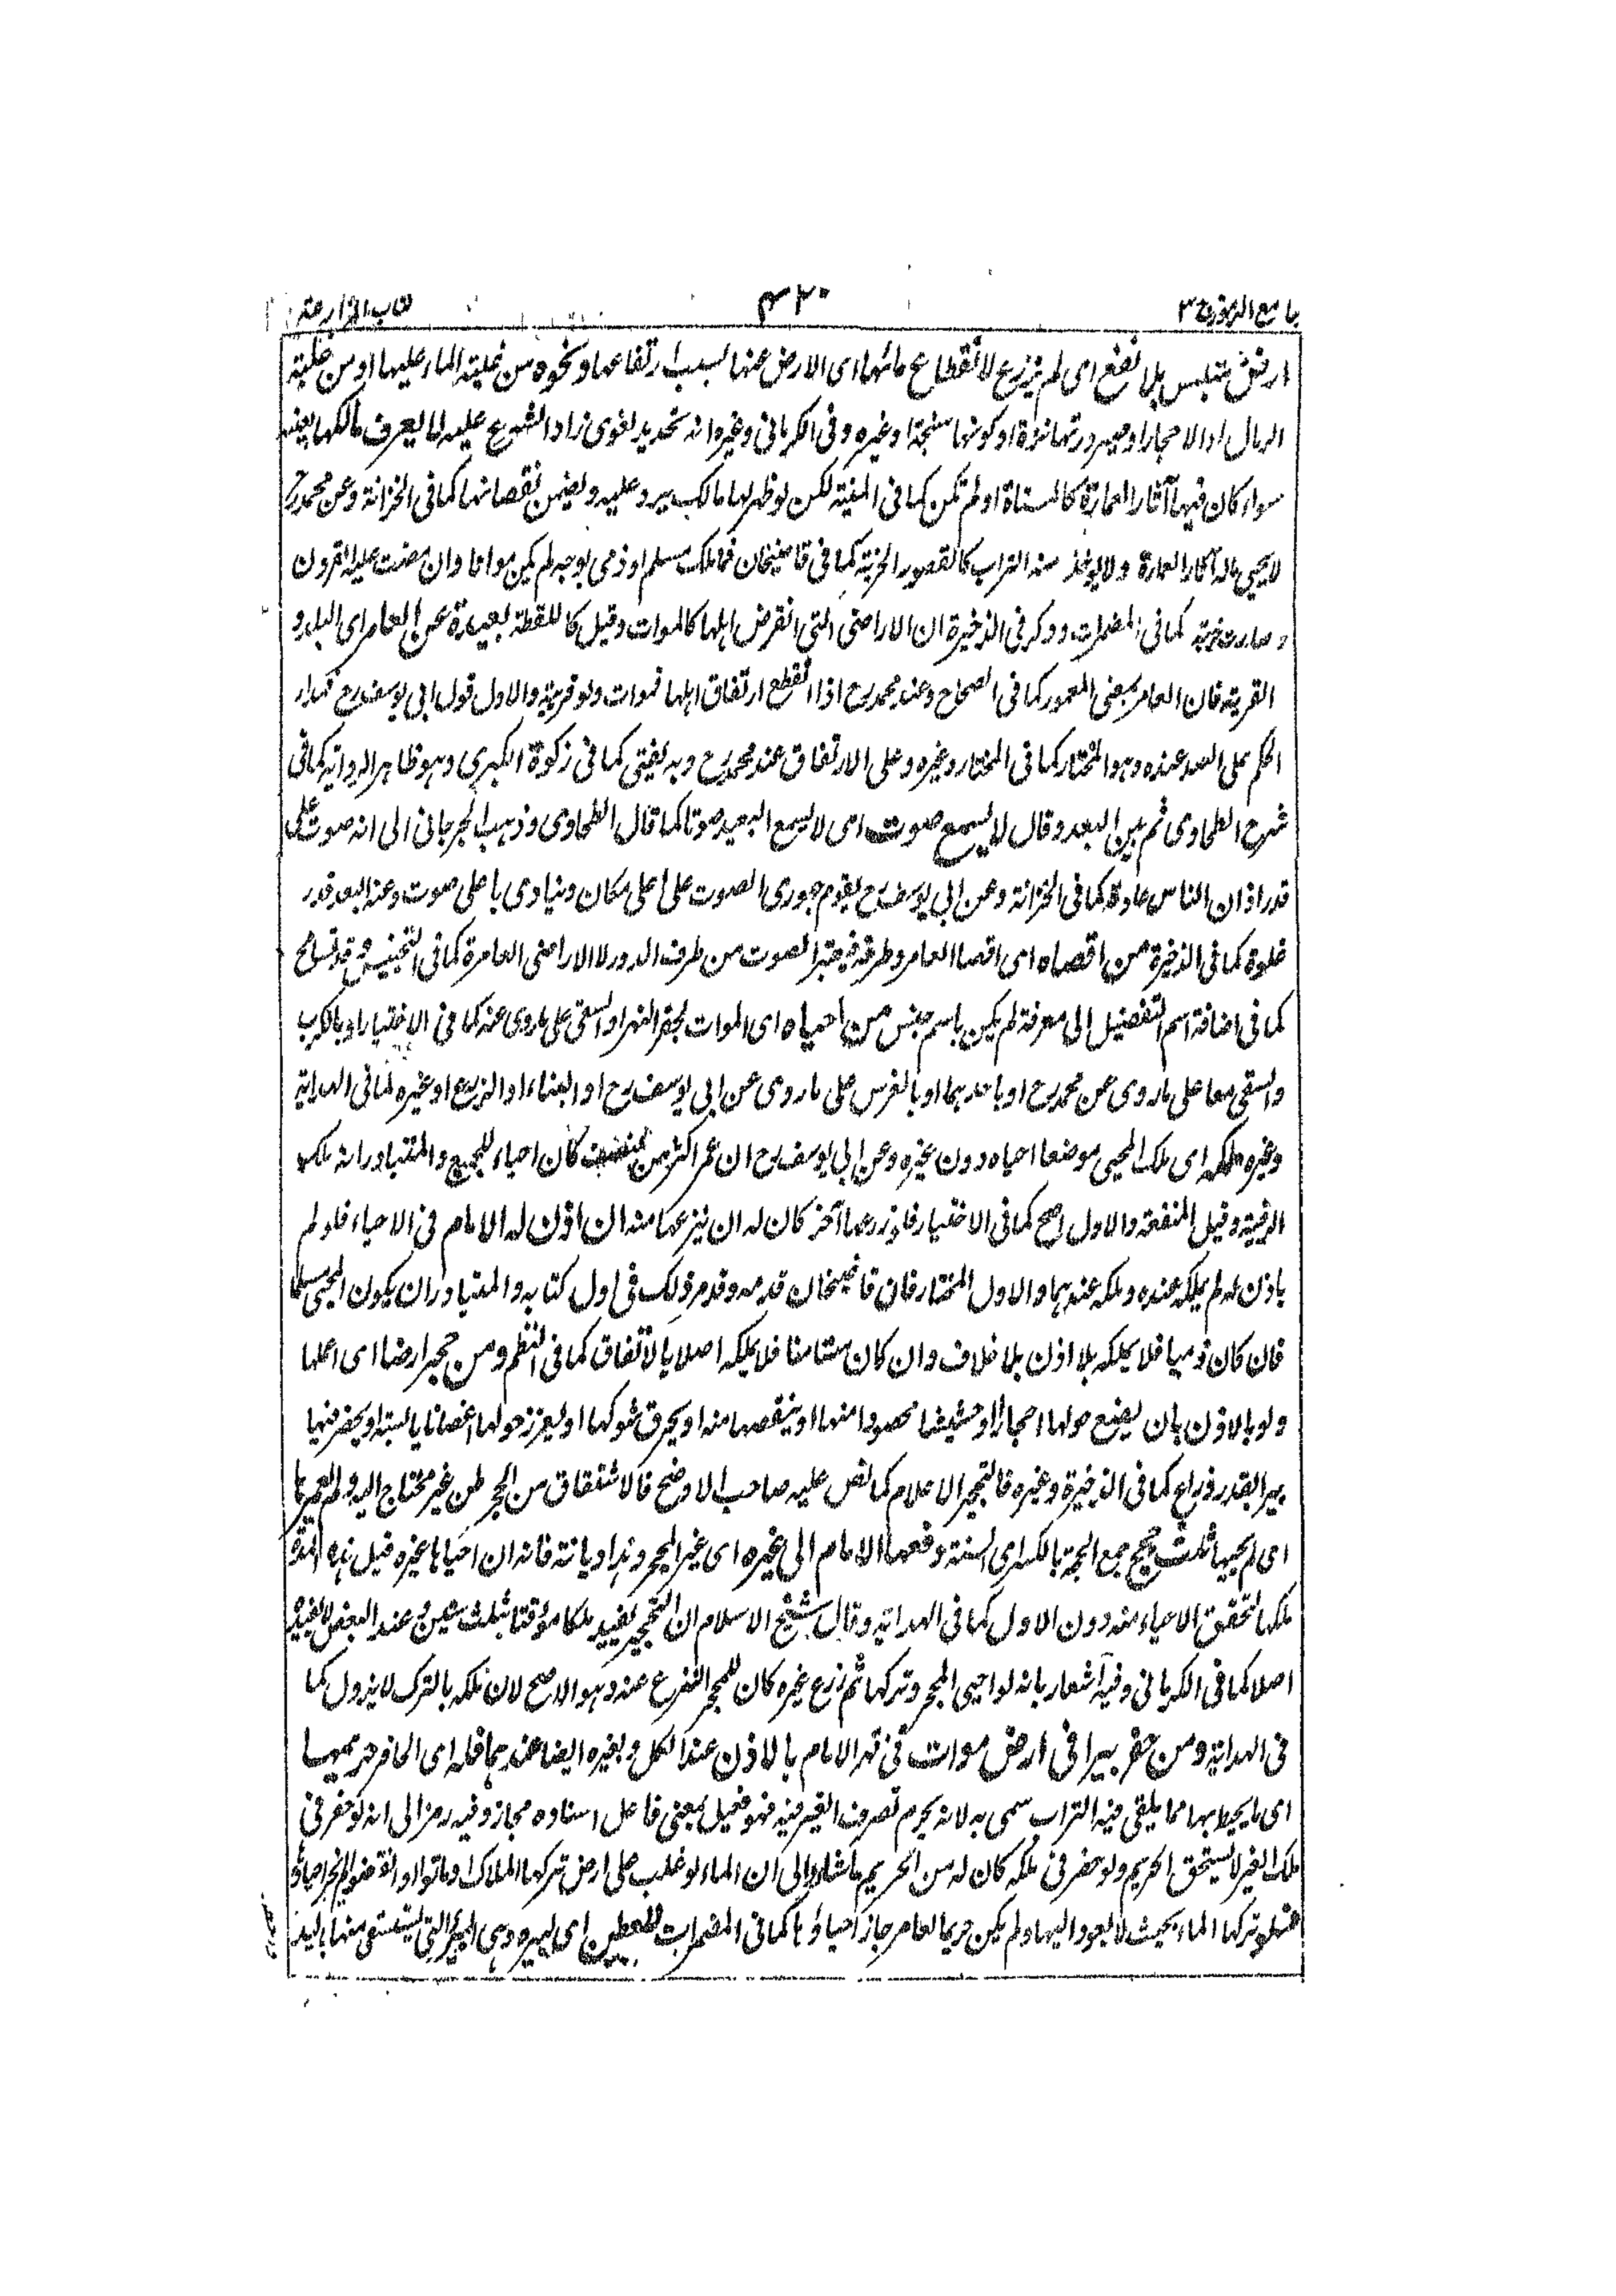 جامع الرموز ج ٣
٤٢٠
كتاب المزارعة
ارض تتلبس بلا نفع اى لم تزرع لانقطاع مائها اى الارض عنها بسبب ارتفاعها ونحوه من غلبته الماء عليها او من غلبته
الرمال او الاحجار او صيرورتها نزة او كونها سبخة او غيره وفى الكرمانى وغيره انه تحديد لغوى زاد الشرع عليه لا يعرف مالكها بعينه
سواء كان فيها آثار العمارة كالمسناة او لم تكن كما فى المنية لكن لو ظهر لها مالك يرد عليه ويضمن نقصانها كما فى الخزانة وعن محمد رح
لا يحيى ماله آثار العمارة ولا يوخذ منه التراب كالقصور الخربة كما فى قاضيخان فما ملك مسلم او ذمى بوجه لم يكن مواتا وان مضت عليه القرون
وصارت خربة كما فى المضمرات وذكر فى الذخيرة ان الاراضى التى انقرض اهلها كالموات وقيل كاللقطة بعيدة عن العامر اى البلد و
القرية فان العامر بمعنى المعمور كما فى الصحاح وعند محمد رح اذا انقطع ارتفاق اهلها فموات ولو قريبة والاول قول ابى يوسف رح فمدار
الحكم على البعد عنده وهو المختار كما فى المختار وغيره وعلى الارتفاق عند محمد رح وبه يفتى كما فى زكوة الكبرى وهو ظاهر الرواية كما فى
شرح الطحاوى ثم بين البعد وقال لا يسمع صوت اى لا يسمع البعيد صوتا كما قال الطحاوى وذهب الجرجانى الى انه صوت على
قدر اذان الناس عادة كما فى الخزانة وعن ابى يوسف رح يقوم جهورى الصوت على اعلى مكان وينادى باعلى صوت وعنه البعد قدر
غلوة كما فى الذخيرة من اقصاه اى اقصا العامر وطرفه فيعتبر الصوت من طرف الدور لا الاراضى العامرة كما فى التجنيس وقد تسامح
كما فى اضافة اسم التفضيل الى معرفة لم يكن باسم جنس من احياه اى الموات بحفر النهر او السقى على ما روى عنه كما فى الاختيار او بالكرب
والسقى معا على ما روى عن محمد رح او باحدهما او بالغرس على ما روى عن ابى يوسف رح او البناء او الزرع او غيره كما فى الهداية
وغيره ملكه اى ملك المحيى موضعا احياه دون غيره وعن ابى يوسف رح ان عمر اكثر من النصف كان احياء للجميع والمتبادر انه ملك
الرقبة وقيل المنفعة والاول اصح كما فى الاختيار فلو زرعها آخر كان له ان ينزعها منه ان اذن له الامام فى الاحياء فلو لم
ياذن له لم يملكه عنده وملكه عندهما والاول المختار فان قاضيخان قدمه وقد مر ذلك فى اول كتابه والمتبادر ان يكون المحيى مسلما
فان كان ذميا فلا يملكه بلا اذن بلا خلاف وان كان مستامنا فلا يملكه اصلا بالاتفاق كما فى النظم ومن حجر ارضا اى اعلمها
ولو بالاذن بان يضع حولها احجارا او حشيشا محصودا منها او ينقصها منه او يحرق شوكها او يغرز حولها اغصانا يابسة او يحفر منها
بيرا بقدر ذراع كما فى الذخيرة وغيره فالتحجير الاعلام كما نص عليه صاحب الاوضح فالاشتقاق من الحجر ظن غير محتاج اليه ولم يعمرها
اى لم يحيها ثلث حجج جمع الحجة بالكسر اى السنة دفعها الامام الى غيره اى غير المحجر وهذا ديانة فانه ان احياها غيره قبل هذه المدة
ملكها لتحقق الاحياء منه دون الاول كما فى الهداية وقال شيخ الاسلام ان التحجير يفيد ملكا مؤقتا بثلث سنين وعند البعض لا يفيد
اصلا كما فى الكرمانى وفيه اشعار بانه لو احيى المحجر وتركها ثم زرع غيره كان للمحجر النزع عنه وهو الاصح لان ملكه بالترك لا يزول كما
فى الهداية ومن حفر بيرا فى ارض موات فى قهر الامام بالاذن عند الكل وبغيره ايضا عندهما فله اى الحافر حريمها
اى ما يحيط بها مما يلقى فيه التراب سمى به لانه يحرم تصرف الغير فيه فهو فعيل بمعنى فاعل اسناده مجاز وفيه رمز الى انه لو حفر فى
ملك الغير لا يستحق الحريم ولو حفر فى ملكه كان له من الحريم ما شاء والى ان الماء لو غلب على ارض تركها الملاك او ماتوا او انقرضوا لم يجز احياؤها
فلو تركها الماء بحيث لا يعود اليها ولم يكن حريما لعامر جاز احياؤها كما فى المضمرات للعطن اى لبيره وهى البئر التى يستقى منها باليد